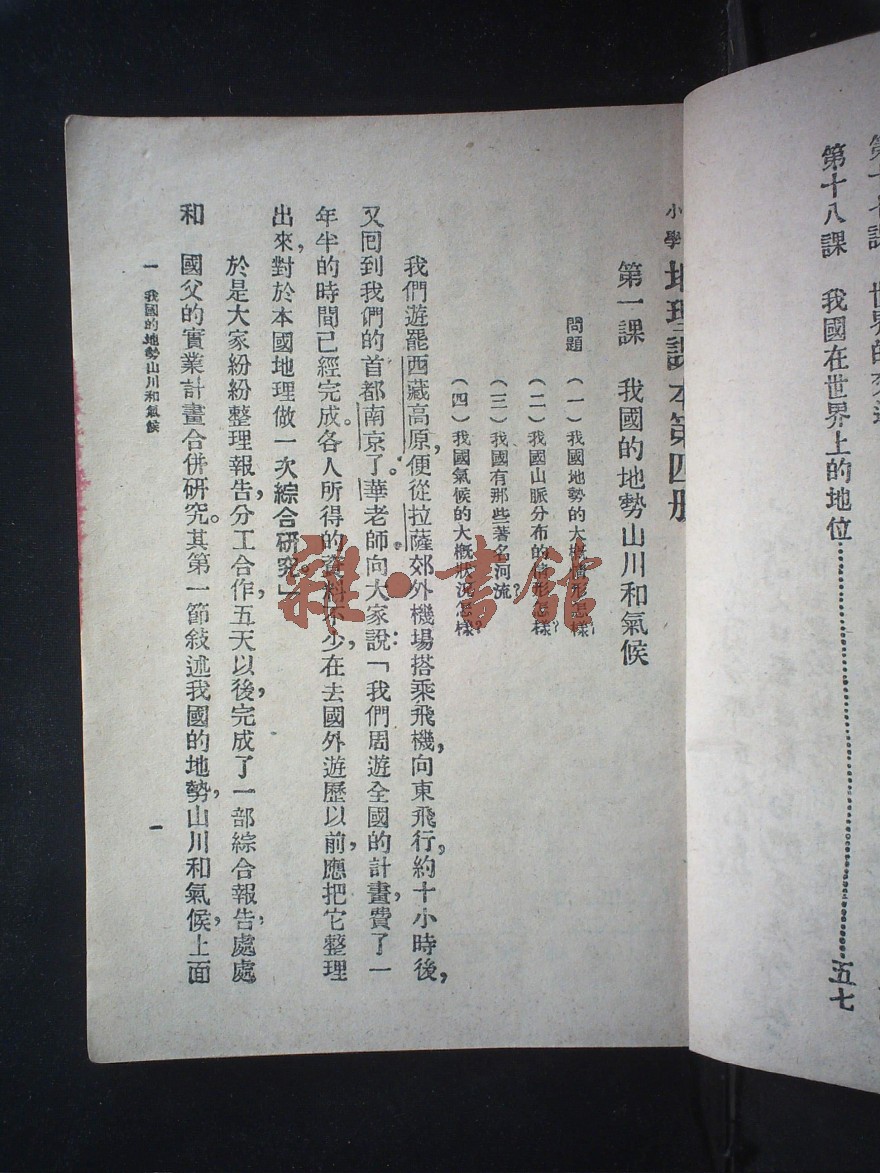 第十八課　我國在世界上的地位……………五七
小學地理課本第四册
第一課　我國的地勢山川和氣候
問題　（一）我國地勢的大概情形怎樣？
（二）我國山脈分布的情形怎樣？
（三）我國有那些著名河流？
（四）我國氣候的大概狀況怎樣？
我們遊罷西藏高原，便從拉薩郊外機場搭乘飛機，向東飛行，約十小時後，
又回到我們的首都南京了。華老師向大家說：「我們周遊全國的計畫，費了一
年半的時間已經完成。各人所得的資料不少，在去國外遊歷以前，應把它整理
出來，對於本國地理做一次綜合研究。」
於是大家紛紛整理報告，分工合作，五天以後，完成了一部綜合報告，處處
和　國父的實業計畫合併研究。其第一節敍述我國的地勢，山川和氣候，上面
一　我國的地勢山川和氣候
一
雜·書館